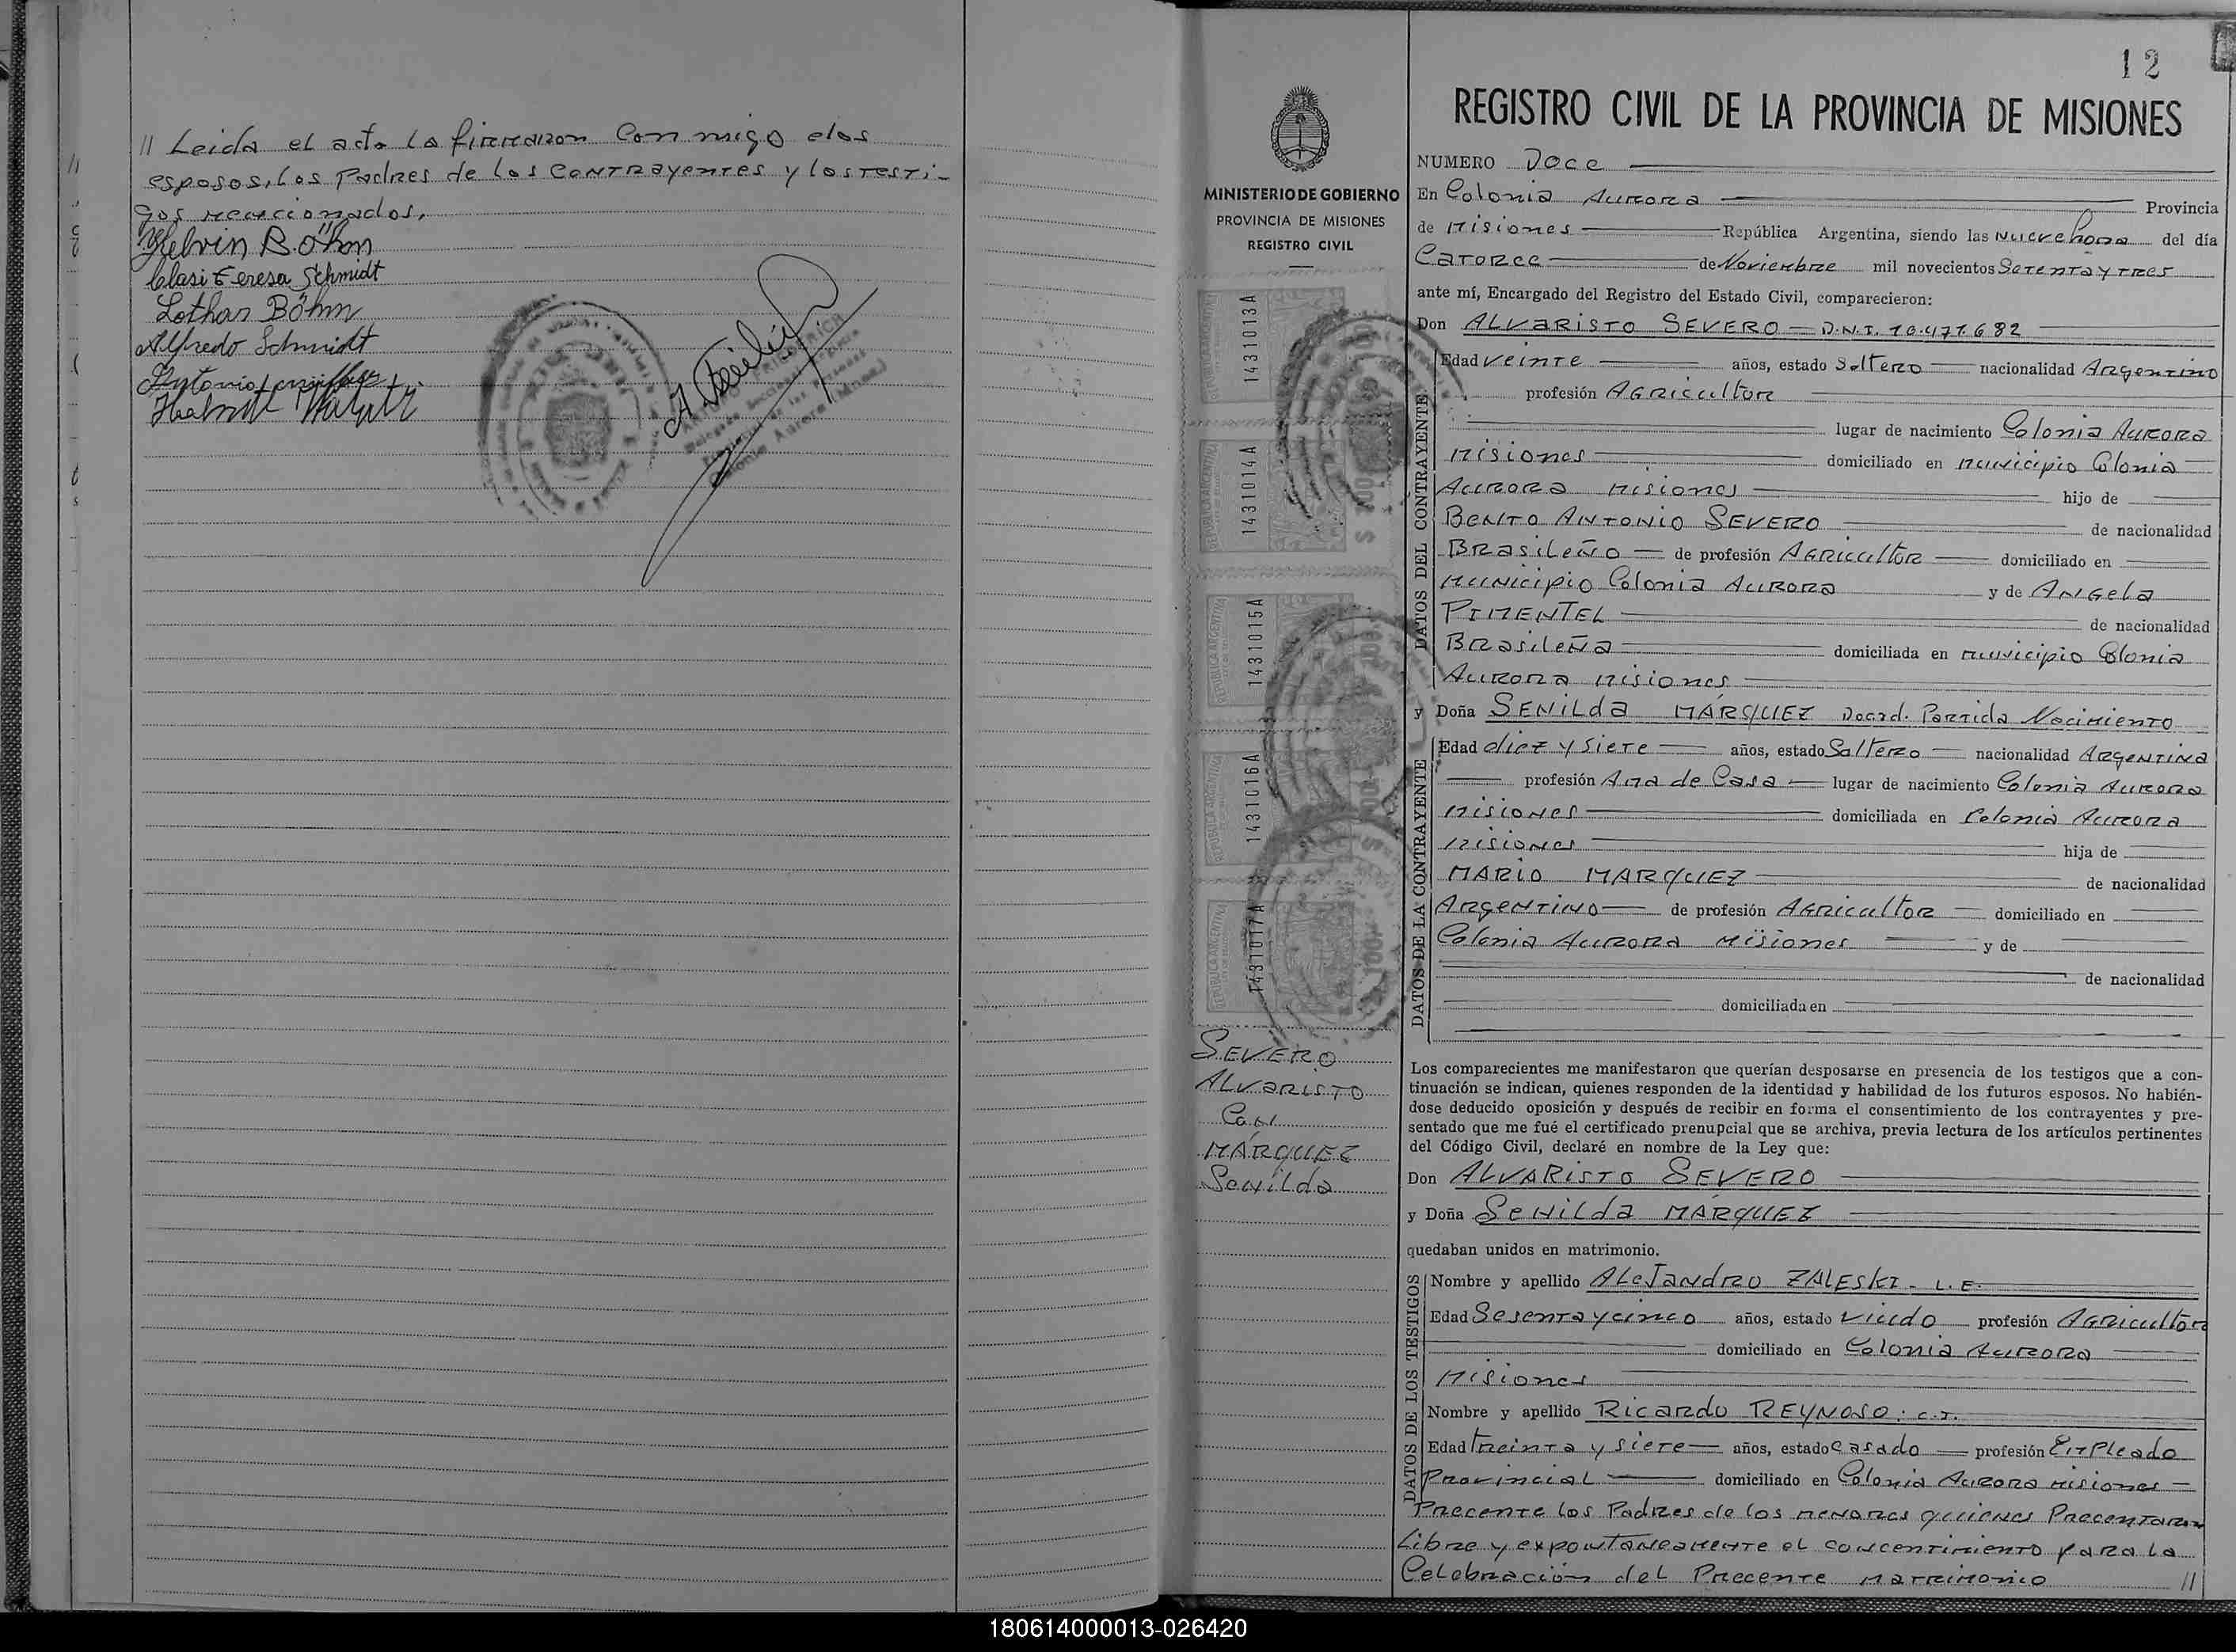 // Leida el acta la firmaron Con migo elos
esposos, los Padres de los CONTRAyentes y los testi-
gos mencionados,
Helvin B. öhm
Clasi Teresa Schmidt
Lothar Böhm
Alfredo Schmidt
12
REGISTRO CIVIL DE LA PROVINCIA DE MISIONES
MINISTERIO DE GOBIERNO
PROVINCIA DE MISIONES
REGISTRO CIVIL
1431013A
1431014A
1431015A
1431016A
1431017A
SEVERO
ALVARISTO
CON
MÁRQUEZ
Senilda
NUMERO Doce
En Colonia Aurora Provincia
de Misiones República Argentina, siendo las nueve hora del día
Catorce de Noviembre mil novecientos Setenta y tres
ante mí, Encargado del Registro del Estado Civil, comparecieron:
Don ALVARISTO SEVERO - D.N.I. 10.471.682
Edad veinte años, estado Soltero nacionalidad Argentino
profesión Agricultor
lugar de nacimiento Colonia Aurora
Misiones domiciliado en municipio Colonia
Aurora Misiones hijo de
BENTO ANTONIO SEVERO de nacionalidad
Brasileño de profesión Agricultor domiciliado en
Municipio Colonia Aurora y de Angela
PIMENTEL de nacionalidad
Brasileña domiciliada en municipio Colonia
Aurora misiones
DATOS DEL CONTRAYENTE
y Doña SENILda MÁRQUEZ Docad. Partida Nacimiento
Edad diez y siete años, estado Soltero nacionalidad Argentina
profesión Ama de Casa lugar de nacimiento Colonia Aurora
Misiones domiciliada en Colonia Aurora
misiones hija de
MARIO MARQUEZ de nacionalidad
Argentino de profesión Agricultor domiciliado en
Colonia Aurora Misiones y de
de nacionalidad
domiciliada en
DATOS DE LA CONTRAYENTE
Los comparecientes me manifestaron que querían desposarse en presencia de los testigos que a con-
tinuación se indican, quienes responden de la identidad y habilidad de los futuros esposos. No habién-
dose deducido oposición y después de recibir en forma el consentimiento de los contrayentes y pre-
sentado que me fué el certificado prenupcial que se archiva, previa lectura de los artículos pertinentes
del Código Civil, declaré en nombre de la Ley que:
Don ALVARISTO SEVERO
y Doña SENILda MÁRQUEZ
quedaban unidos en matrimonio.
Nombre y apellido ALeJandro ZALESKI - L.E.
Edad Sesenta y cinco años, estado viudo profesión Agricultor
domiciliado en Colonia Aurora
Misiones
Nombre y apellido Ricardo REYNOSO: C.I.
Edad treinta y siete años, estado casado profesión Empleado
Provincial domiciliado en Colonia Aurora misiones
DATOS DE LOS TESTIGOS
Precente los Padres de los menores quienes Precentaron
Libre y expontaneamente el concentimiento para la
Celebración del Precente matrimonio //
180614000013-026420